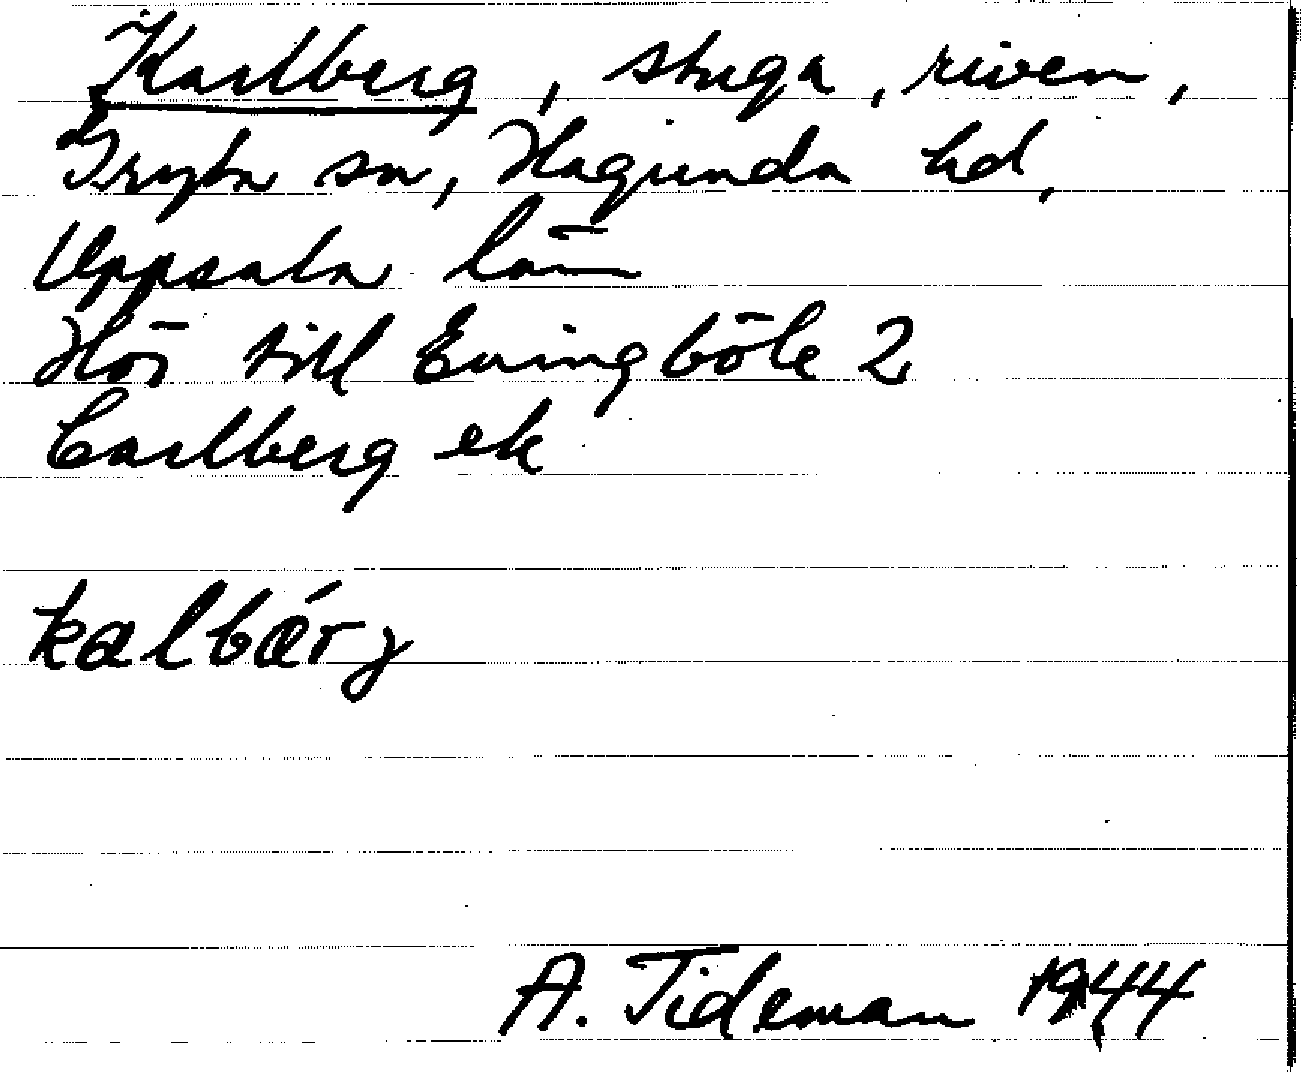 Karlberg, stuga, riven,
Gryta sn, Hagunda hd,
Uppsala län
Hör till Evingböle 2
Carlberg ek
kalbærj
A. Tideman 1944